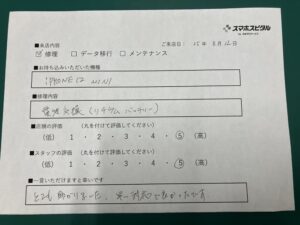 スマホスピタル
■来店内容
ご来店日: 15年 8月12日
☑ 修理 □ データ移行 □ メンテナンス
■お持ち込みいただいた機種
iPHONE12 mini
■修理内容
電池交換(リチウムバッテリー)
■店舗の評価 (丸を付けて評価してください)
(低) 1 ・ 2 ・ 3 ・ 4 ・ ⑤ (高)
■スタッフの評価 (丸を付けて評価してください)
(低) 1 ・ 2 ・ 3 ・ 4 ・ ⑤ (高)
■一言いただけますと幸いです
とても助かりました。 です